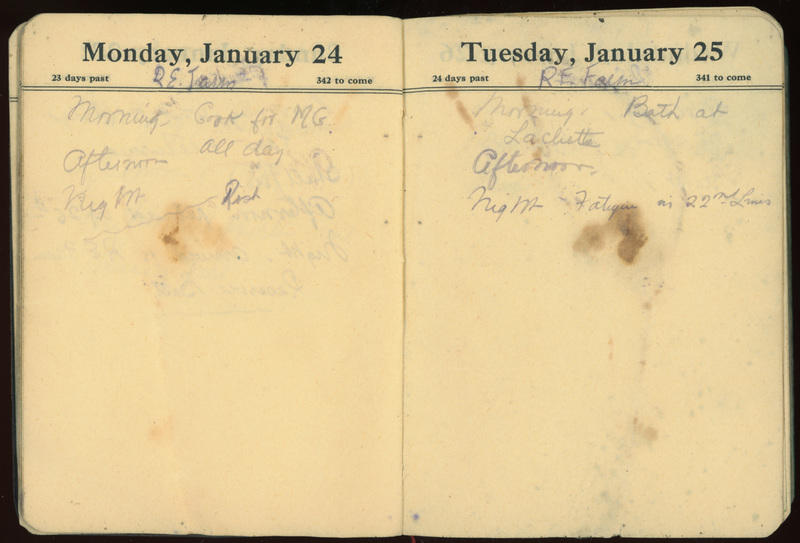 Monday, January 24
23 days past R.E. Farm 342 to come
Morning Cook for MG.
all day
Afternoon
Night Rest
Tuesday, January 25
24 days past R.E. Farm 341 to come
Morning. Bath at
Lachette
Afternoon.
Night Fatigue in 22nd Lines